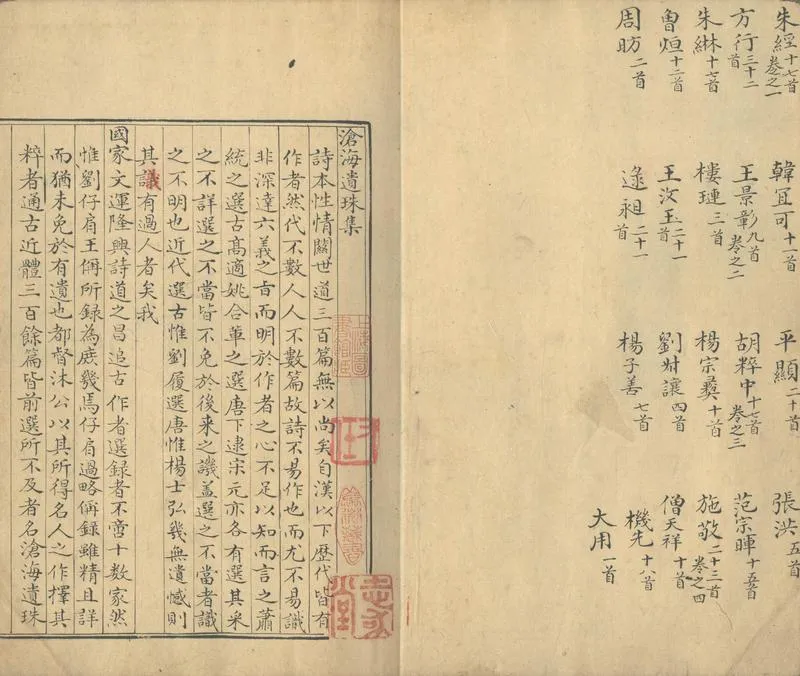 朱經十七首卷之一 韓冝可十一首 平顯二十首 張洪五首
方行三十二首 王景彰九首卷之二 胡粹中十七首卷之三 范宗暉十五首
朱綝十七首 樓璉三首 楊宗彞十首 施敬二十三首卷之四
曾烜十二首 王汝玉二十一首 劉尗讓四首 僧天祥十首
周昉二首 逯祖二十一首 楊子善七首 機先十八首
大用一首
滄海遺珠集
詩本性情關世道三百篇無以尚矣自漢以下歷代皆有
作者然代不數人人不數篇故詩不易作也而尤不易識
非深達六義之㫖而明於作者之心不足以知而言之蕭
統之選古高適姚合軰之選唐下逮宋元亦各有選其采
之不詳選之不當皆不免於後来之譏盖選之不當者識
之不明也近代選古惟劉履選唐惟楊士弘幾無遺憾則
其議有過人者矣我
國家文運隆興詩道之昌追古作者選録者不啻十數家然
惟劉仔肩王偁所録為庻幾焉仔肩過略偁録雖精且詳
而猶未免於有遺也都督沐公以其所得名人之作擇其
粹者通古近體三百餘篇皆前選所不及者名滄海遺珠